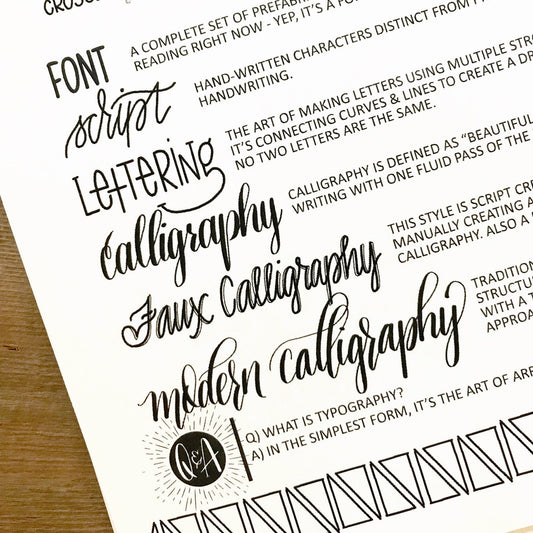 FONT
A COMPLETE SET OF PREFAB
READING RIGHT NOW - YEP, IT'S A FO
script
HAND-WRITTEN CHARACTERS DISTINCT FROM
HANDWRITING.
LETTERING
THE ART OF MAKING LETTERS USING MULTIPLE STRO
IT'S CONNECTING CURVES & LINES TO CREATE A DR
NO TWO LETTERS ARE THE SAME.
Calligraphy
CALLIGRAPHY IS DEFINED AS "BEAUTIFUL
WRITING WITH ONE FLUID PASS OF THE
Faux Calligraphy
THIS STYLE IS SCRIPT CRE
MANUALLY CREATING A
CALLIGRAPHY. ALSO A
modern calligraphy
TRADITION
STRUCTUR
WITH A T
APPROA
Q&A
Q) WHAT IS TYPOGRAPHY?
A) IN THE SIMPLEST FORM, IT'S THE ART OF ARR